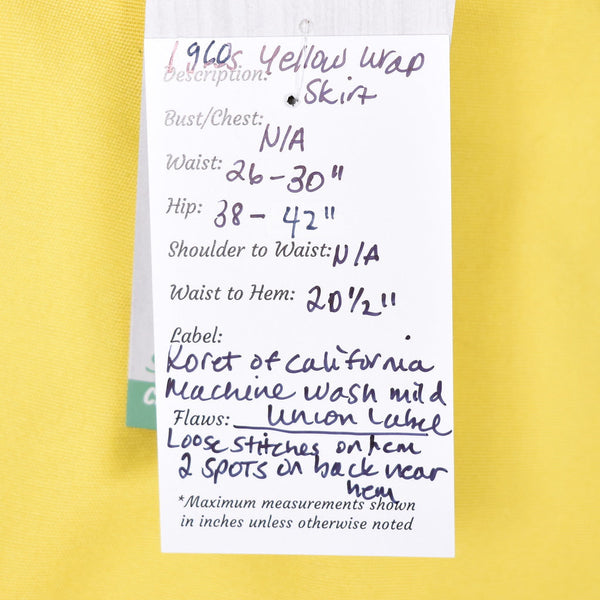 1960s Yellow Wrap
Description:
Skirt
Bust/Chest:
N/A
Waist: 26-30"
Hip: 38- 42"
Shoulder to Waist: N/A
Waist to Hem: 20 1/2"
Label:
Koret of California
Machine wash mild
Flaws: Union Label
Loose stitches on hem
2 spots on back near
hem
*Maximum measurements shown
in inches unless otherwise noted